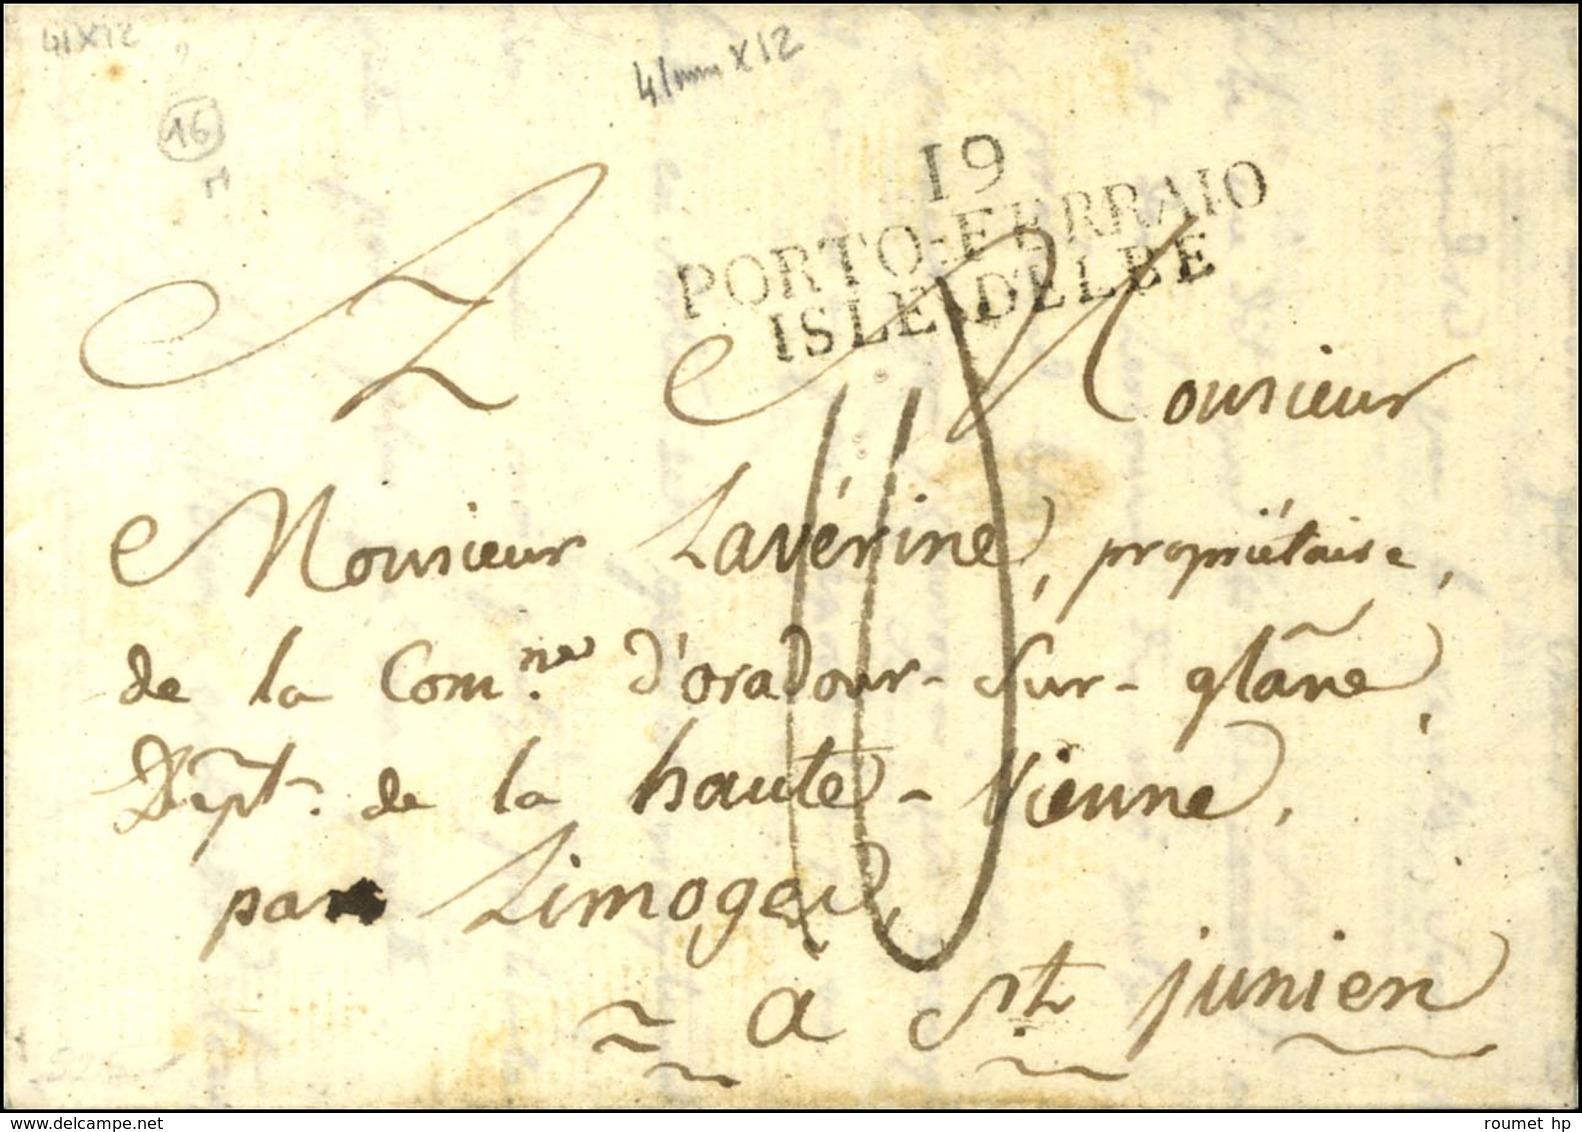 41x12
41mm x 12
16
19
PORTO-FERRAIO
ISLE D'ELBE
A Monsieur
10
Monsieur Lavérine, propriétaire,
de la Comne. d'oradour-sur-glâne,
Dept. de la haute-Vienne,
par Limoges,
à St. junien
roumet hp